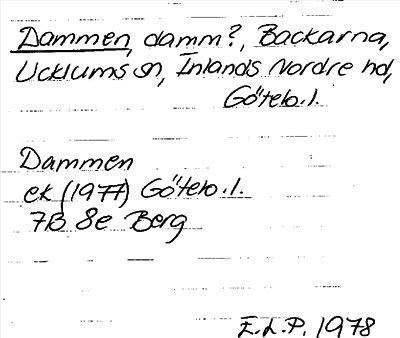 Dammen, damm?, Backarna,
Ucklums sn, Inlands Nordre hd,
Göteb. l.
Dammen
ek (1977) Göteb. l.
7B 8e Berg
E.L.P. 1978